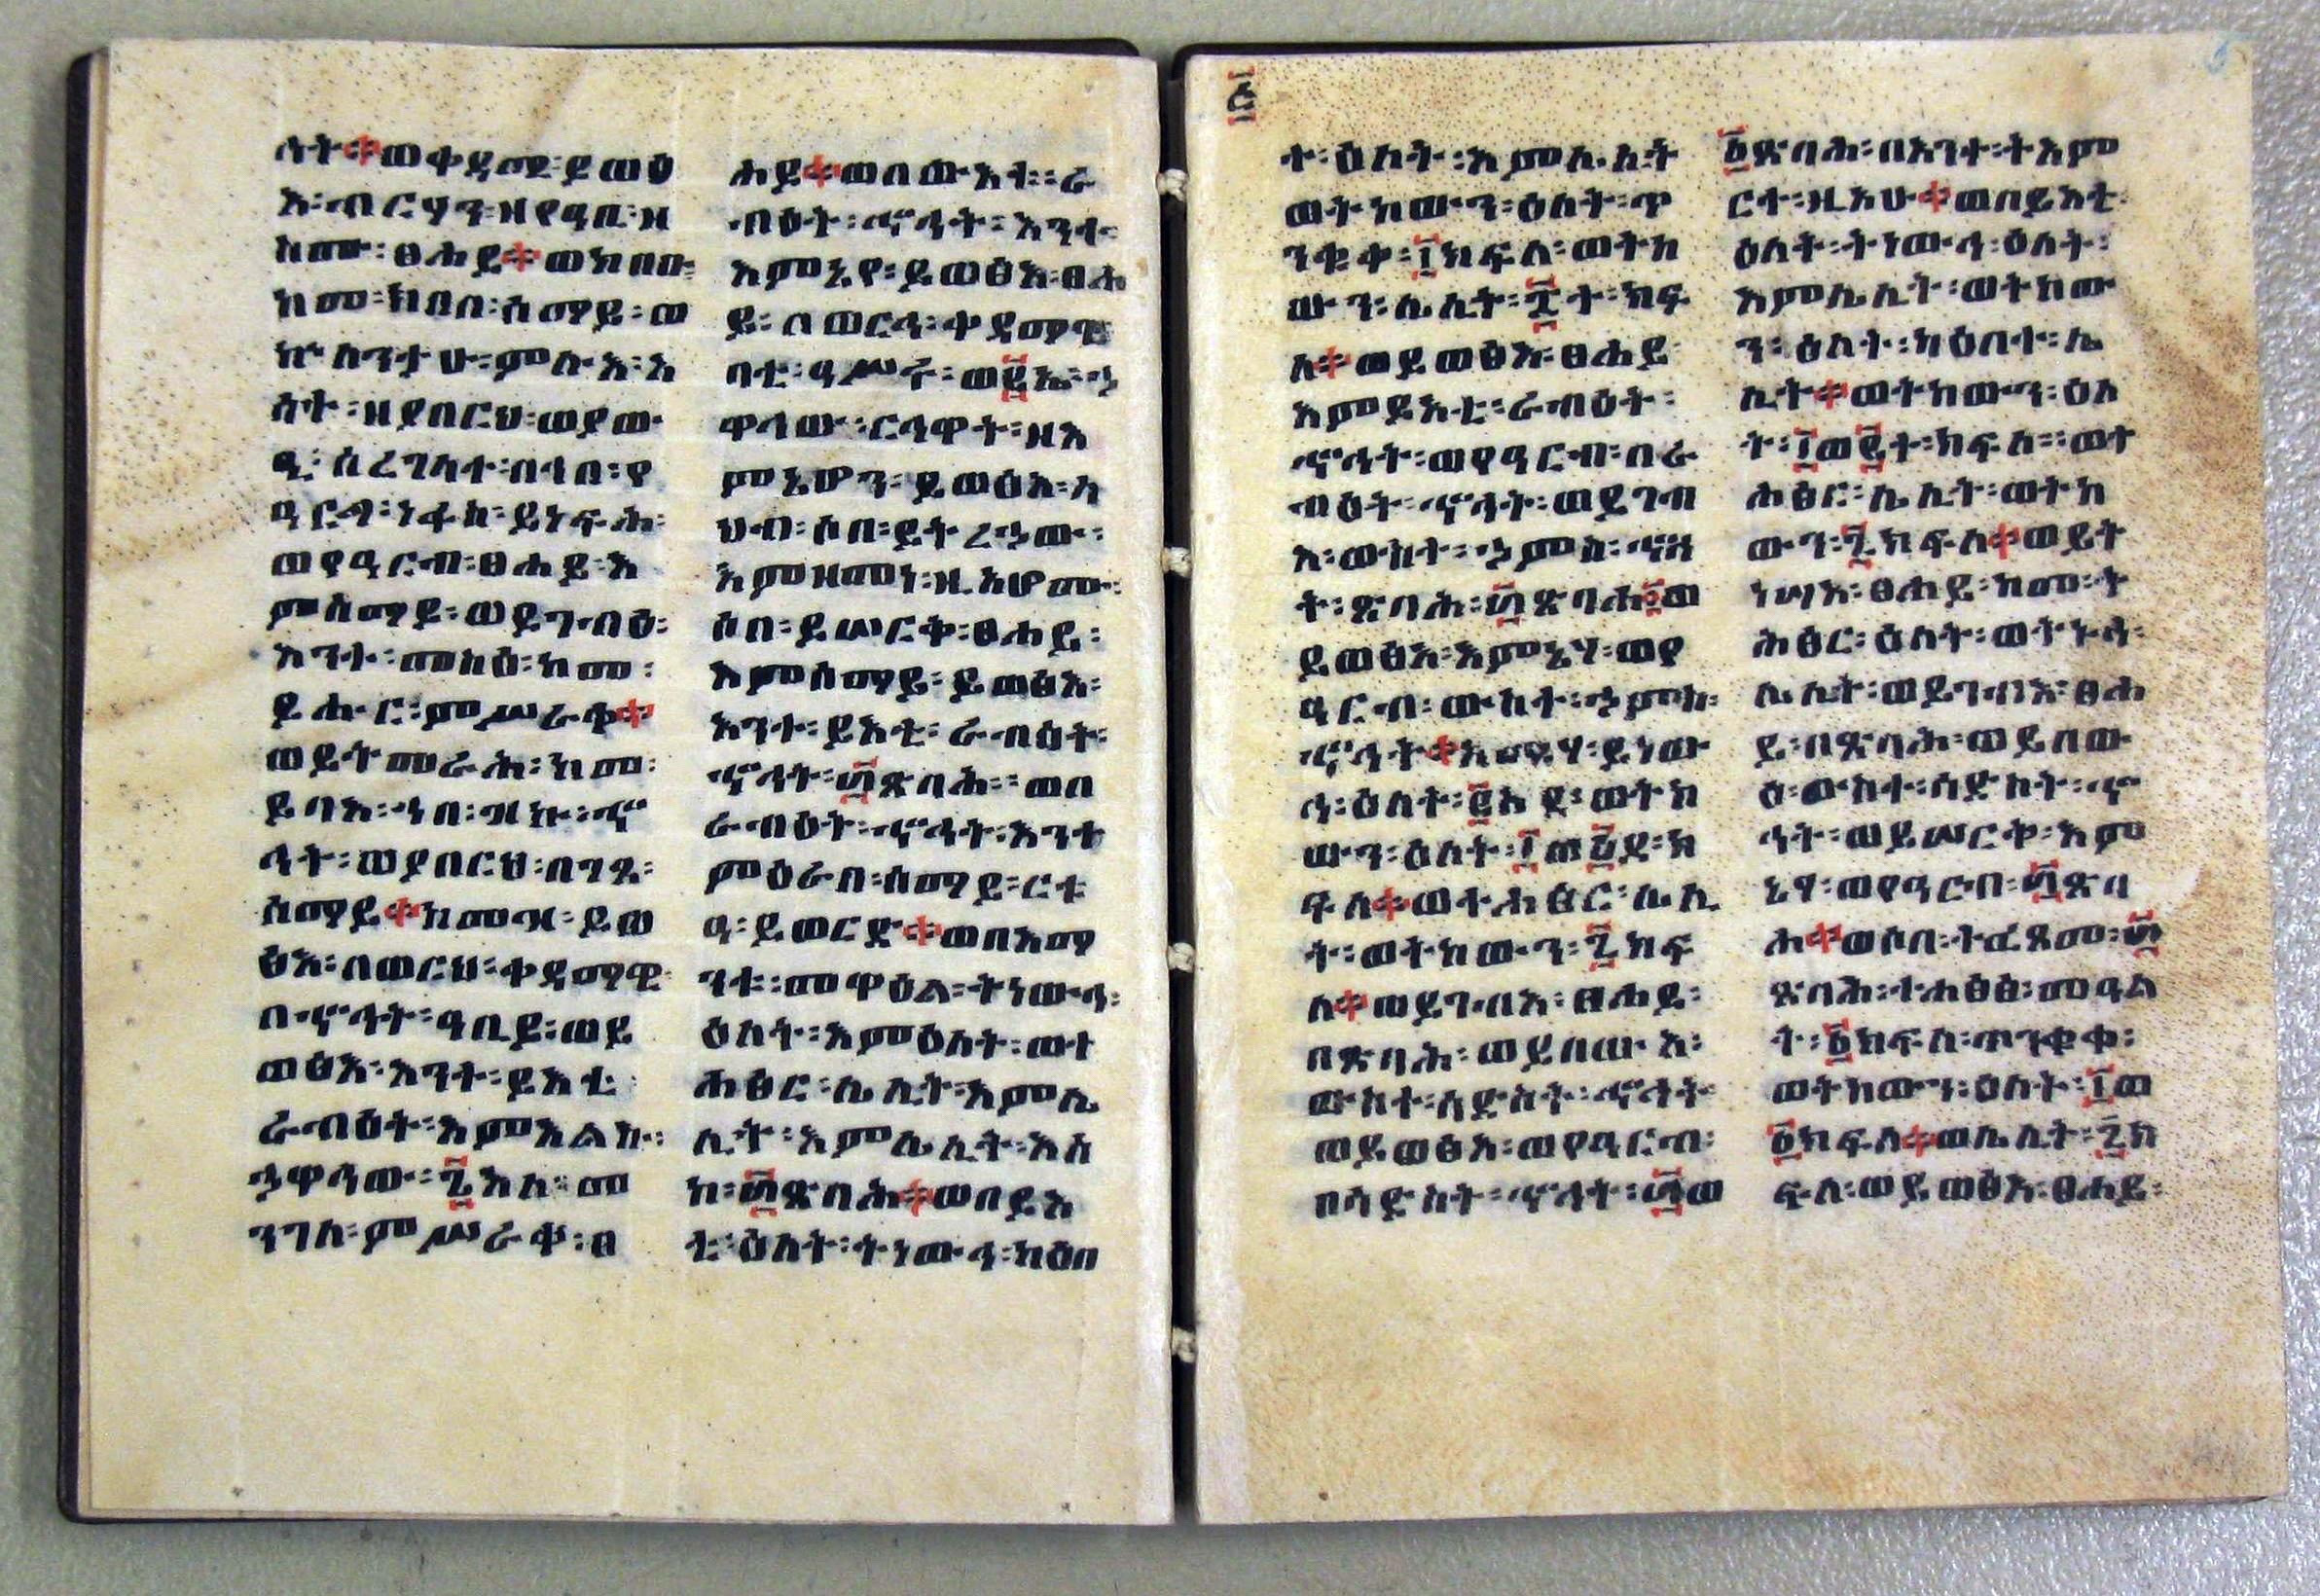 ሳት። ወቀዳሚ፡ ይወፅ
እ፡ ብርሃን፡ ዘየዓቢ፡ ዘ
ስሙ፡ ፀሐይ። ወክበቡ፡
ከመ፡ ክበበ፡ ሰማይ፡ ወ
ኵለንታሁ፡ ምሉእ፡ እ
ሳት፡ ዘያበርህ፡ ወያው
ዒ፡ ሰረገላተ፡ በኀበ፡ የ
ዓርግ፡ ነፋስ፡ ይነፍሕ፡
ወየዓርብ፡ ፀሐይ፡ እ
ምሰማይ፡ ወይገብዕ፡
እንተ፡ መስዕ፡ ከመ፡
ይሑር፡ ምሥራቀ።
ወይትመራሕ፡ ከመ፡
ይባእ፡ ኀበ፡ ዝኩ፡ ኆ
ኅት፡ ወያበርህ፡ በገጸ፡
ሰማይ። ከመዝ፡ ይወ
ፅእ፡ በወርህ፡ ቀዳማዊ፡
በኆኅት፡ ዓቢይ፡ ወይ
ወፅእ፡ እንተ፡ ይእቲ፡
ራብዕት፡ እምእልኩ፡
ኀዋኅው፡ ፮እለ፡ መ
ንገለ፡ ምሥራቀ፡ ፀ
ሐይ። ወበውእቱ፡ ራ
ብዕት፡ ኆኅት፡ እንተ፡
እምኔሃ፡ ይወፅእ፡ ፀሐ
ይ፡ በወርኅ፡ ቀዳማዊ፡
ባቲ፡ ዓሥሩ፡ ወ፪ ኀ
ዋኅው፡ ርኅዋት፡ ዘእ
ምኔሆን፡ ይወፅእ፡ ላ
ህብ፡ ሶበ፡ ይትረኀው፡
እምዘመነ፡ ዚአሆሙ፡
ሶበ፡ ይሠርቅ፡ ፀሐይ፡
እምሰማይ፡ ይወፅእ፡
እንተ፡ ይእቲ፡ ራብዕት፡
ኆኅት፡ ፴ጽባሕ፡ ወበ
ራብዕት፡ ኆኅት፡ እንተ
ምዕራበ፡ ሰማይ፡ ርቱ
ዓ፡ ይወርድ። ወበእማ
ንቱ፡ መዋዕል፡ ትነውኅ፡
ዕለት፡ እምዕለት፡ ወተ
ሐፅር፡ ሌሊት፡ እምሌ
ሊት፡ እምሌሊት፡ እስ
ከ፡ ፴ጽባሕ። ወበይእ
ቲ፡ ዕለት፡ ትነውኅ፡ ካዕበ
፭
ተ፡ ዕለት፡ እምሌሊት
ወትከውን፡ ዕለት፡ ጥ
ንቁቀ፡ ፲ክፍለ፡ ወትከ
ውን፡ ሌሊት፡ ፰ተ፡ ክፍ
ለ። ወይወፅእ፡ ፀሐይ፡
እምይእቲ፡ ራብዕት፡
ኆኅት፡ ወየዓርብ፡ በራ
ብዕት፡ ኆኅት፡ ወይገብ
እ፡ ውስተ፡ ኃምስ፡ ኆኅ
ት፡ ጽባሕ፡ ፴ጽባሕ፡ ወ
ይወፅእ፡ እምኔሃ፡ ወየ
ዓርብ፡ ውስተ፡ ኃምስ፡
ኆኅት። አሜሃ፡ ይነው
ኅ፡ ዕለት፡ ፪እደ፡ ወትከ
ውን፡ ዕለት፡ ፲ወ፩ደ፡ ክ
ፍለ። ወተሐፅር፡ ሌሊ
ት፡ ወትከውን፡ ፯ክፍ
ለ። ወይገብእ፡ ፀሐይ፡
በጽባሕ፡ ወይበውእ፡
ውስተ፡ ሳድስት፡ ኆኅት
ወይወፅእ፡ ወየዓርብ፡
በሳድስት፡ ኆኅት፡ ፴ወ
፩ጽባሕ፡ በእንተ፡ ትእም
ርተ፡ ዚአሁ። ወበይእቲ፡
ዕለት፡ ትነውኅ፡ ዕለት፡
እምሌሊት፡ ወትከው
ን፡ ዕለት፡ ካዕበተ፡ ሌ
ሊት። ወትከውን፡ ዕለ
ት፡ ፲ወ፪ተ፡ ክፍለ፡ ወተ
ሐፅር፡ ሌሊት፡ ወትከ
ውን፡ ፮ክፍለ። ወይት
ነሣእ፡ ፀሐይ፡ ከመ፡ ት
ሕፅር፡ ዕለት፡ ወትኑኅ፡
ሌሊት፡ ወይገብእ፡ ፀሐ
ይ፡ በጽባሕ፡ ወይበው
ዕ፡ ውስተ፡ ሳድስት፡ ኆ
ኅት፡ ወይሠርቅ፡ እም
ኔሃ፡ ወየዓርብ፡ ፴ጽባ
ሕ። ወሶበ፡ ተፈጸመ፡ ፴
ጽባሕ፡ ተሐፅፅ፡ መዓል
ት፡ ፩ክፍለ፡ ጥንቁቀ፡
ወትከውን፡ ዕለት፡ ፲ወ
፩ክፍለ። ወሌሊት፡ ፯ክ
ፍለ፡ ወይወፅእ፡ ፀሐይ፡